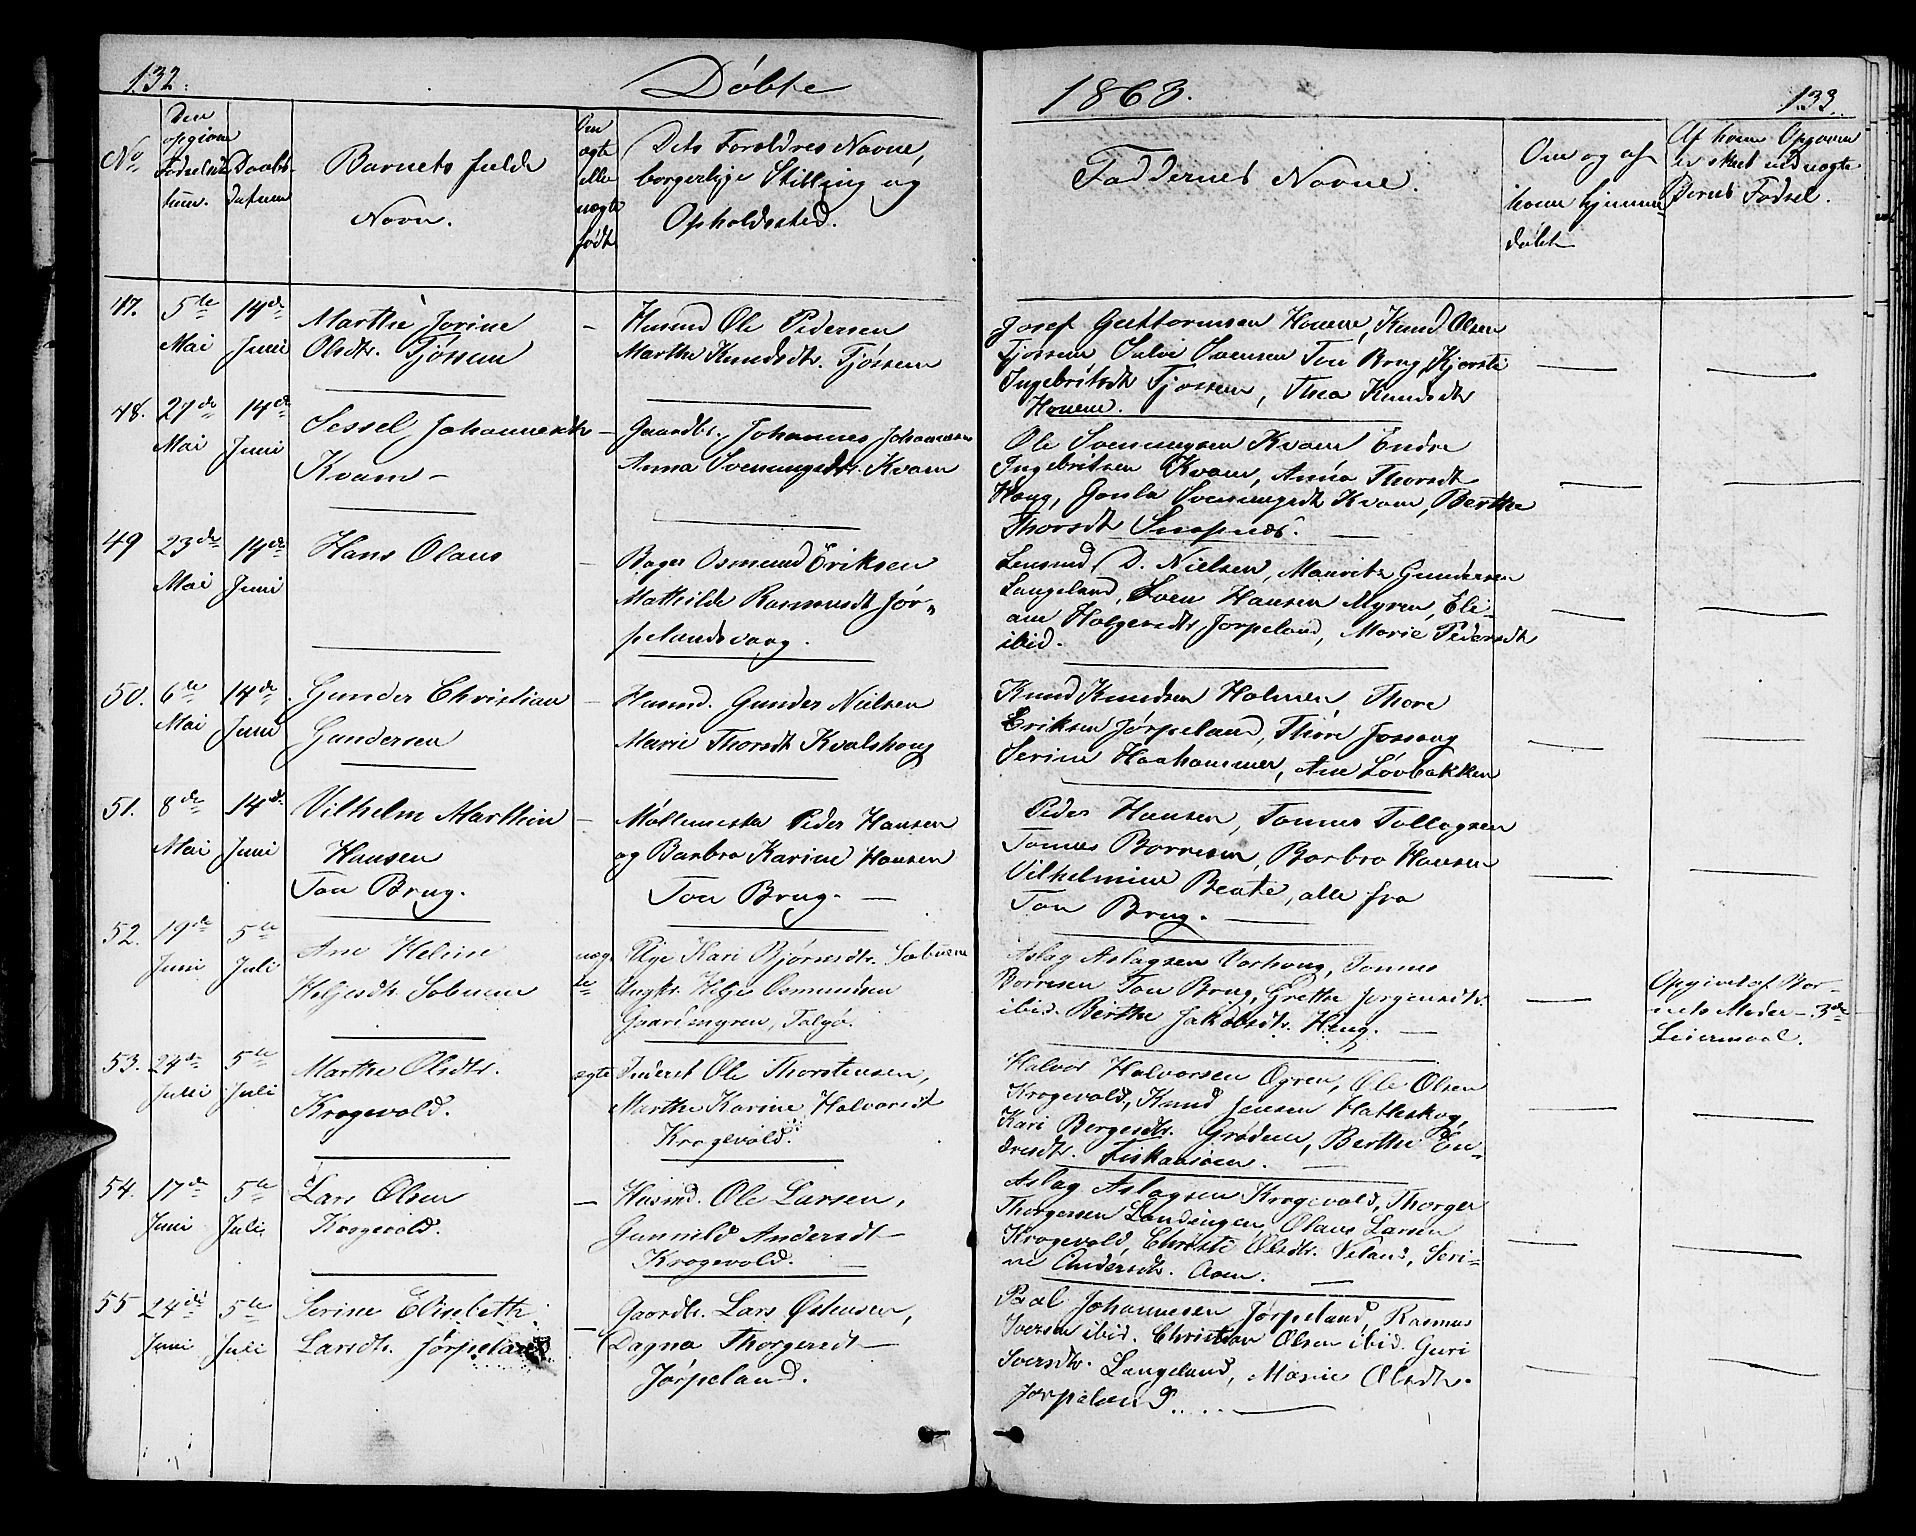 132.
Døbte
1863.
133.
No.
Den opgivne Fødselsda-
tum.
Daabs-
datum
Barnets fulde
Navn.
Om
ægte
eller
uægte
født
Dets Foreldres Navne,
borgerlige Stilling og
Opholdssted.
Faddernes Navne.
Om og af
hvem hjemme-
døbt
Af hvem Opgaven
er skeet ved uægte
Børns Fødsel.
47.
5te
Mai
14de
Juni
Marthe Jorine
Olsdtr. Tjøssem
-
Husmd Ole Pedersen
Marthe Knudsdtr. Tjøssem
Josef Guttormsen Houene, Knud Olsen
Tjøssem Salvi Svensen Tou Brug, Kjersti
Ingebritsdt Tjossem, Thea Knudsdtr
Houene.
48.
27de
Mai
14de
Juni
Sessel Johannesdtr
Kvam -
-
Gaardbr. Johannes Johannessen
Anna Svenungsdtr. Kvam
Ole Svenungsen Kvam Endre
Ingebritsen Kvam, Anna Thorsdt
Haug, Gunla Svenungsdt Kvam, Berthe
Thorsdt
49
23de
Mai
14de
Juni
Hans Olaus
-
Bager Osmund Eriksen
Mathilde Rasmusdt Jør-
pelandsvaag.
Lensmd D. Nielsen, Mauritz Gundersen
Langeland, Sven Hansen Myren, Eli-
ane Holgersdtr Jorpeland, Marie Pedersdt
ibid.
50.
6te
Mai
14de
Juni
Gunder Christian
Gundersen
-
Husmd. Gunder Nielsen
Marie Thorsdt Kvalshaug
Knud Knudsen Holmen, Thore
Eriksen Jørpeland, Thore Jossang
Serine Haahammer, Ane Løvbakken
51.
8de
Mai
14de
Juni
Vilhelm Marthin
Hansen
Tou Brug.
-
Møllemester Peder Hansen
og Barbro Karine Hansen
Tou Brug. -
Peder Hansen, Tonnes Tollagsen
Tonnes Borresen, Barbro Hansen
Vilhelmine Beate, alle fra
Tou Brug. -
52.
19de
Juni
5te
Juli
Ane Heline
Heljesdtr Solmene
uæg-
te
Pige Kari Bjørnsdtr. Solmene
Ungkr. Helje Osmundsen
Gaardmyren, Talgø.
Aslag Aslagsen Varhoug, Tonnes
Borresen Tou Brug, Grethe Jorgensdtr.
ibid. Berthe Jakobsdtr. Haug. -
Opgivet af Bar-
nets Moder - 3de
Leiermaal.
53.
24de
Juni
5te
Juli
Marthe Olsdtr.
Krogevold.
ægte
Inderst Ole Thorstensen,
Marthe Karine Halvorsdt
Krogevold.
Halvor Halvorsen Ogren, Ole Olsen
Krogevold, Knud Jensen Hatleskog,
Kari Bergesdtr. Grødem, Berthe En-
dresdtr. Fiskaaøen. -
54.
17de
Juni
5te
Juli
Lars Olsen
Krogevold.
-
Husmd. Ole Larsen,
Gunnild Andersdt -
Krogevold. -
Aslag Aslagsen Krogevold, Thorger
Thorgersen Landingen, Olaus Larsen
Krogevold, Christe Olsdtr. Veland, Seri-
ne Andersdtr. Aaen. -
55
24de
Juni
5te
Juli
Serine Elisabeth
Larsdtr. Jørpeland
-
Gaardbr. Lars Østensen,
Dagna Thorgersdt -
Jørpeland.
Paal Johannesen Jørpeland, Rasmus
Iversen ibid. Christian Olsen ibid. Guri
Iversdtr. Langeland, Marie Olsdtr.
Jørpeland. -